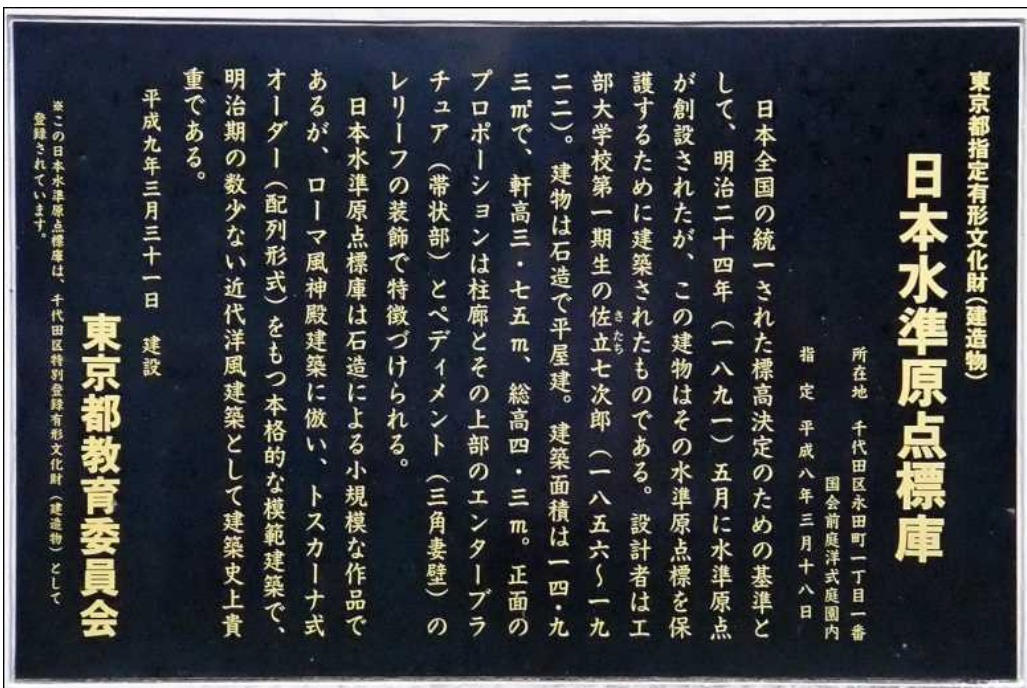 東京都指定有形文化財(建造物)
日本水準原点標庫
所在地 千代田区永田町一丁目一番
国会前庭洋式庭園内
指 定 平成八年三月十八日
日本全国の統一された標高決定のための基準と
して、明治二十四年(一八九一)五月に水準原点
が創設されたが、この建物はその水準原点標を保
護するために建築されたものである。設計者は工
部大学校第一期生の佐立七次郎(一八五六〜一九
さたち
二二)。建物は石造で平屋建。建築面積は一四・九
三㎡で、軒高三・七五m、総高四・三m。正面の
プロポーションは柱廊とその上部のエンターブラ
チュア(帯状部)とペディメント(三角妻壁)の
レリーフの装飾で特徴づけられる。
日本水準原点標庫は石造による小規模な作品で
あるが、ローマ風神殿建築に倣い、トスカーナ式
オーダー(配列形式)をもつ本格的な模範建築で、
明治期の数少ない近代洋風建築として建築史上貴
重である。
平成九年三月三十一日 建設
東京都教育委員会
※この日本水準原点標庫は、千代田区特別登録有形文化財(建造物)として
登録されています。